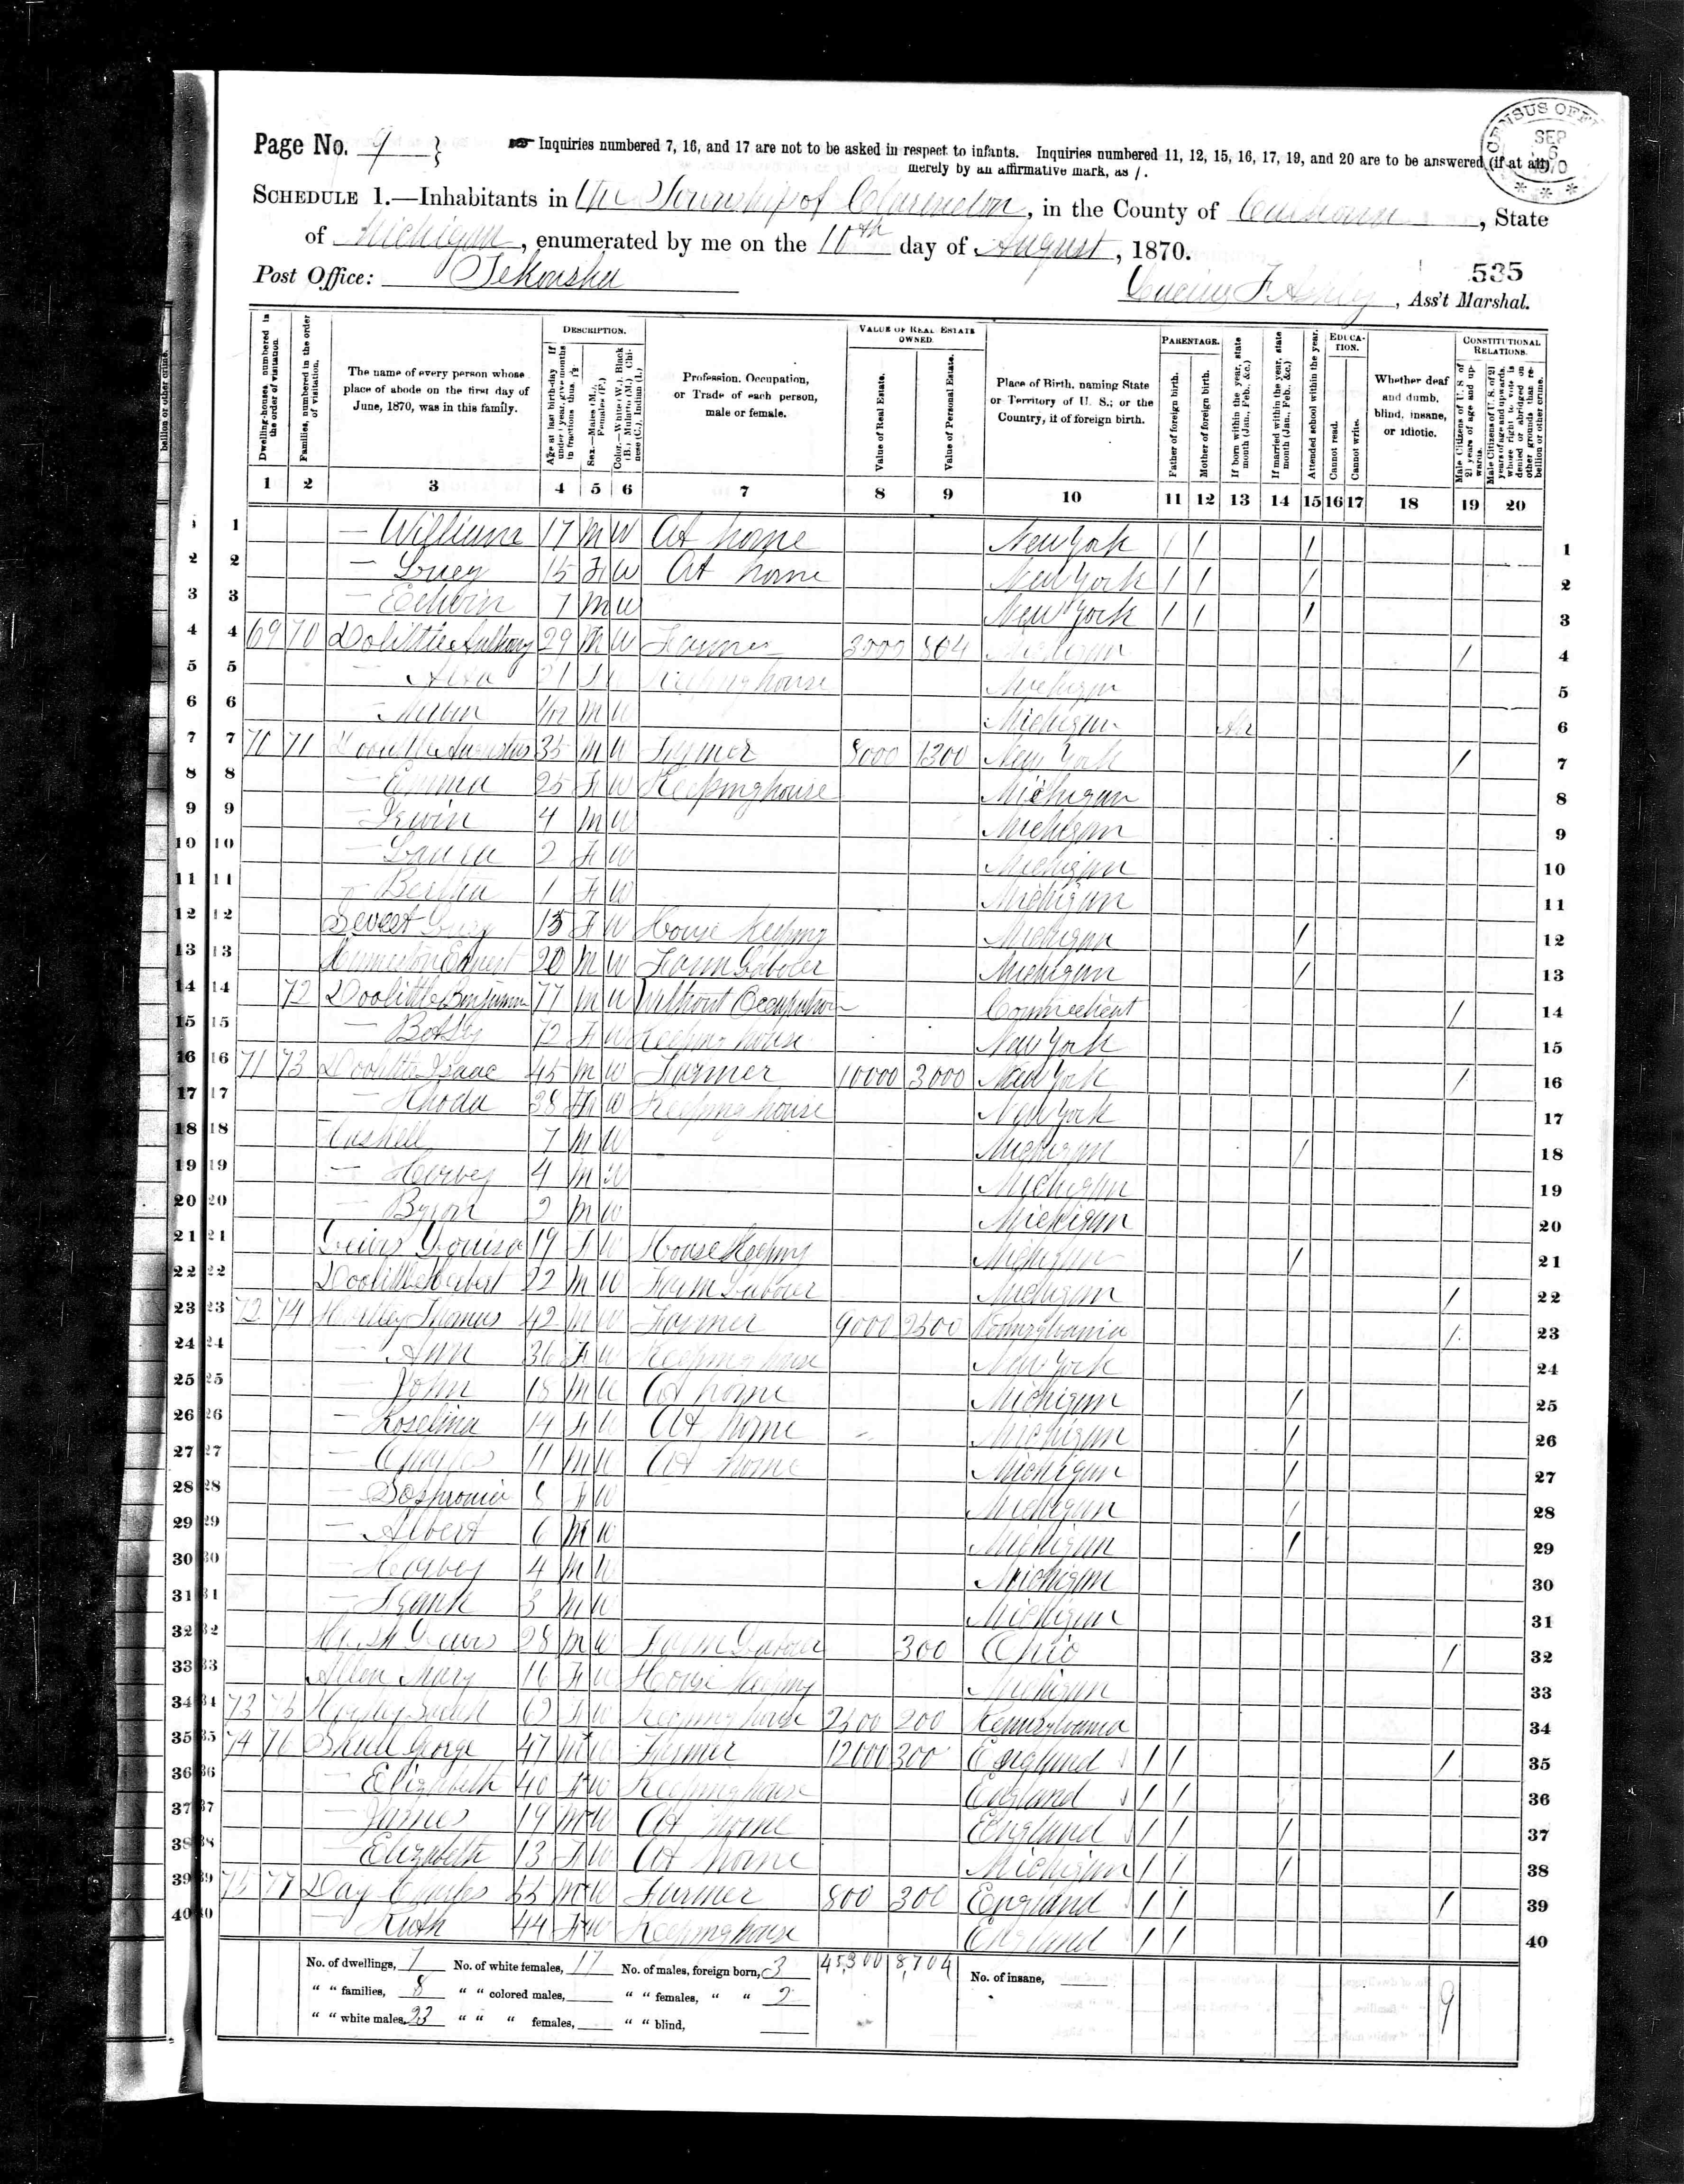 Page No. 9 }
Inquiries numbered 7, 16, and 17 are not to be asked in respect to infants. Inquiries numbered 11, 12, 15, 16, 17, 19, and 20 are to be answered (if at all)
merely by an affirmative mark, as /.
CENSUS OFFI SEP 6 1870
SCHEDULE 1.—Inhabitants in the Township of Clarendon, in the County of Calhoun, State
of Michigan, enumerated by me on the 10th day of August, 1870.
535
Post Office: Tekonsha
Lucius F. , Ass't Marshal.
bellion or other crime.
Dwelling-houses numbered in the order of visitation.
Families, numbered in the order of visitation.
The name of every person whose place of abode on the first day of June, 1870, was in this family.
DESCRIPTION.
Age at last birth-day. If under 1 year, give months in fractions, thus, 3/12
Sex.—Males (M.), Females (F.)
Color.—White (W.), Black (B.), Mulatto (M.), Chinese (C.), Indian (I.)
Profession, Occupation, or Trade of each person, male or female.
VALUE OF REAL ESTATE OWNED.
Value of Real Estate.
Value of Personal Estate.
Place of Birth, naming State or Territory of U. S.; or the Country, if of foreign birth.
PARENTAGE.
Father of foreign birth.
Mother of foreign birth.
If born within the year, state month (Jan., Feb., &c.)
If married within the year, state month (Jan., Feb., &c.)
Attended school within the year.
EDUCATION.
Cannot read.
Cannot write.
Whether deaf and dumb, blind, insane, or idiotic.
CONSTITUTIONAL RELATIONS.
Male Citizens of U. S. of 21 years of age and upwards.
Male Citizens of U. S. of 21 years of age and upwards, whose right to vote is denied or abridged on other grounds than rebellion or other crime.
1 2 3 4 5 6 7 8 9 10 11 12 13 14 15 16 17 18 19 20
1 1 — William 17 M W At home New York / / / 1
2 2 — Lucy 15 F W At home New York / / / 2
3 3 — Edwin 7 M W New York / / / 3
4 4 69 70 Dolittle Anthony 29 M W Farmer 3000 804 Michigan / 4
5 5 — 21 F W Keeping house Michigan 5
6 6 — M W Michigan 6
7 7 70 71 Doolittle Augustus 35 M W Farmer 8000 1300 New York / 7
8 8 — Emma 25 F W Keeping house Michigan 8
9 9 — Irwin 4 M W Michigan 9
10 10 — Laura 2 F W Michigan 10
11 11 — Bertha 1 F W Michigan 11
12 12 Sweet Lucy 15 F W House Keeping Michigan / 12
13 13 Ernest 20 M W Farm Laborer Michigan / 13
14 14 72 Doolittle Benjamin 77 M W Without Occupation Connecticut / 14
15 15 — Betsy 72 F W Keeping house New York 15
16 16 71 73 Doolittle Isaac 45 M W Farmer 10000 3000 New York / 16
17 17 — Rhoda 38 F W Keeping house New York 17
18 18 7 M W Michigan / 18
19 19 — Harvey 4 M W Michigan 19
20 20 — Byron 2 M W Michigan 20
21 21 Lewis Louisa 19 F W House Keeping Michigan / 21
22 22 Doolittle Herbert 22 M W Farm Laborer Michigan / 22
23 23 72 74 Thomas 42 M W Farmer 9000 2500 Pennsylvania / 23
24 24 — Ann 36 F W Keeping house New York 24
25 25 — John 18 M W At home Michigan / 25
26 26 — Roselina 14 F W At home Michigan / 26
27 27 — Charles 11 M W At home Michigan / 27
28 28 — Sophronia 8 F W Michigan / 28
29 29 — Albert 6 M W Michigan / 29
30 30 — Harvey 4 M W Michigan 30
31 31 — Frank 3 M W Michigan 31
32 32 Lewis 28 M W Farm Laborer 300 Ohio / 32
33 33 Allen Mary 16 F W House Keeping Michigan 33
34 34 73 75 F W Keeping house 2500 200 Pennsylvania 34
35 35 74 76 Shull George 47 M W Farmer 12000 300 England / / / 35
36 36 — Elizabeth 40 F W Keeping house England / / 36
37 37 — James 19 M W At home England / / / 37
38 38 — Elizabeth 13 F W At home Michigan / / / 38
39 39 75 77 Day Charles 55 M W Farmer 800 300 England / / / 39
40 40 — Ruth 44 F W Keeping house England / / 40
No. of dwellings, 7 No. of white females, 17 No. of males, foreign born, 3 45,300 8,704 No. of insane,
" " families, 8 " " colored males, " " females, " " 2 9
" " white males, 23 " " " females, " " blind,